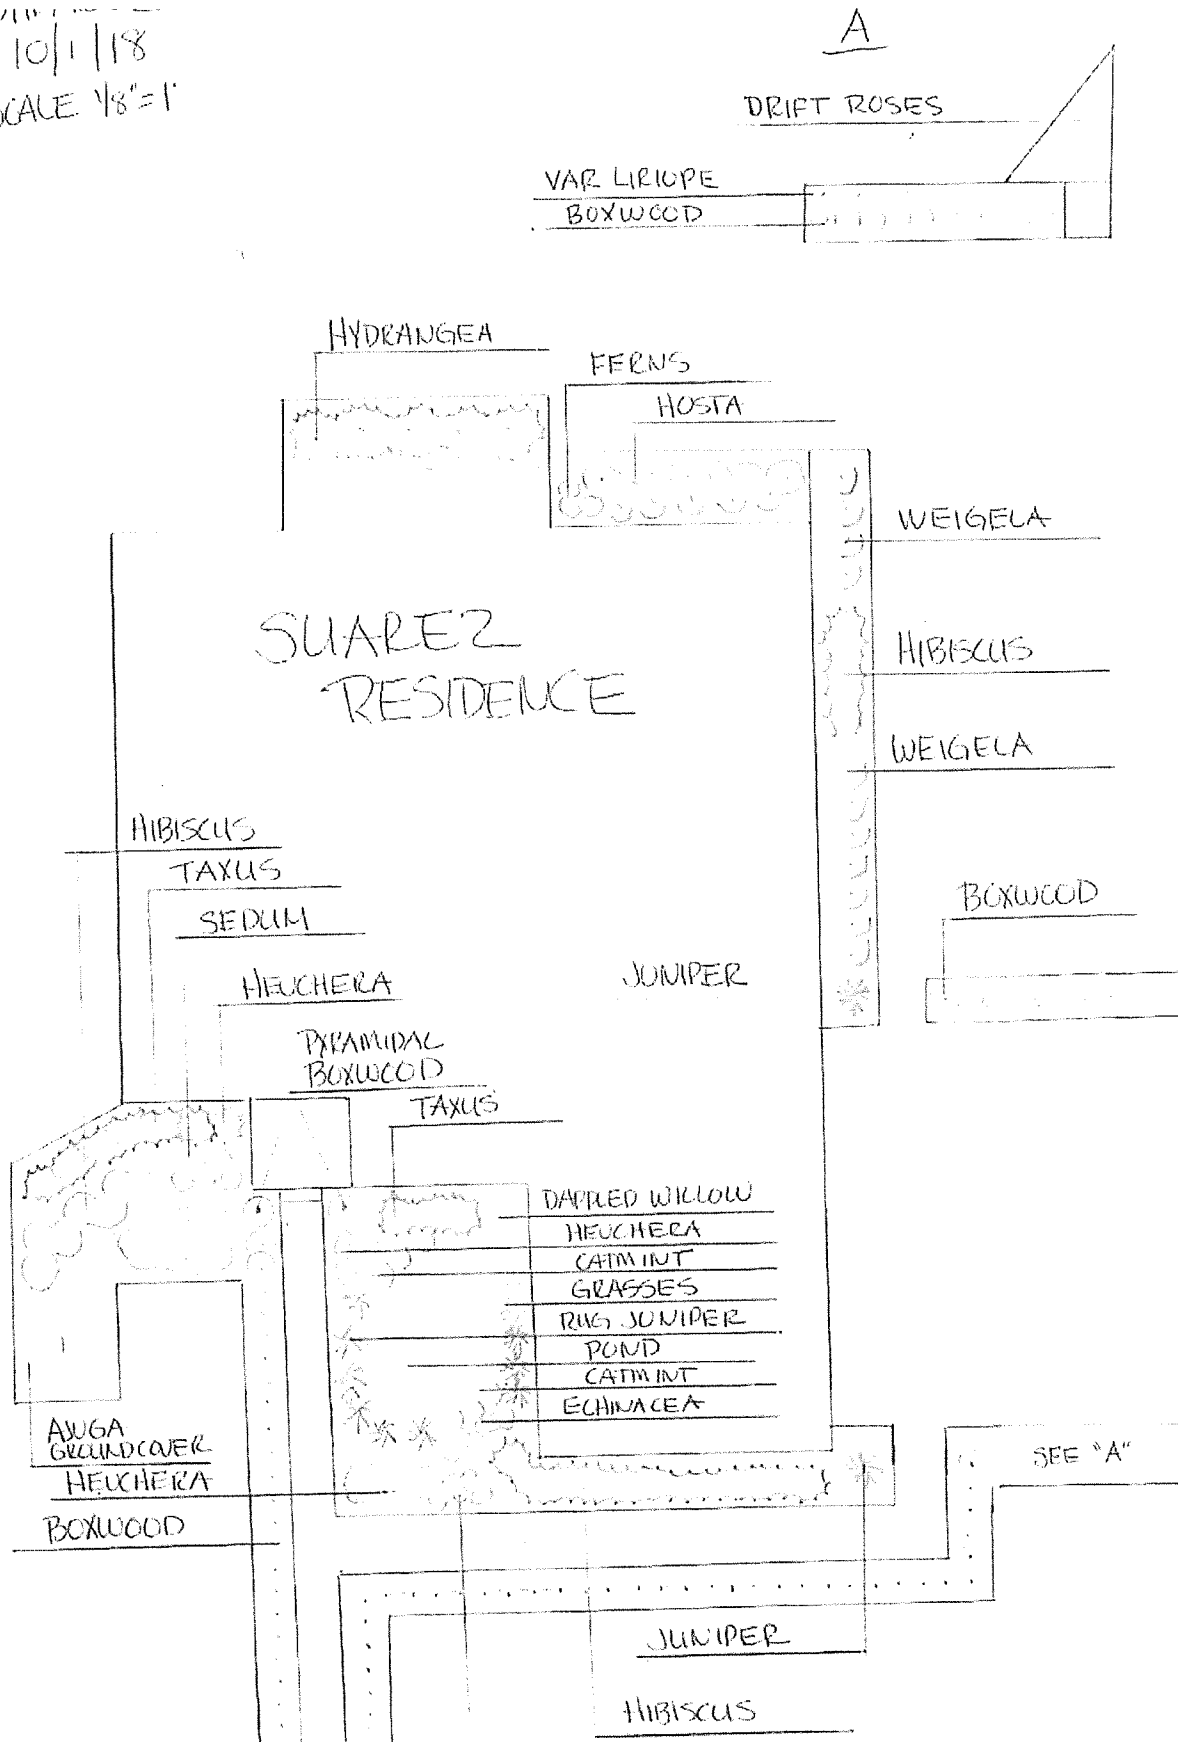 10/1/18
SCALE 1/8"=1'
A
DRIFT ROSES
VAR LIRIOPE
BOXWOOD
HYDRANGEA
FERNS
HOSTA
WEIGELA
SUAREZ
RESIDENCE
HIBISCUS
WEIGELA
HIBISCUS
TAXUS
SEDUM
BOXWOOD
HEUCHERA
JUNIPER
PYRAMIDAL
BOXWOOD
TAXUS
DAPPLED WILLOW
HEUCHERA
CATMINT
GRASSES
RUG JUNIPER
POND
CATMINT
ECHINACEA
AJUGA
GROUNDCOVER
HEUCHERA
BOXWOOD
SEE "A"
JUNIPER
HIBISCUS